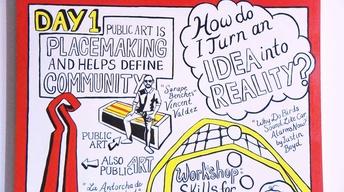 DAY 1
PUBLIC ART IS
PLACEMAKING
AND HELPS DEFINE
COMMUNITY
How do
I Turn an
IDEA into
REALITY?
"Sarape
Benches"
Vincent
Valdez
PUBLIC
ART
ALSO
PUBLIC ART
"Why Do Birds
Sound Like Car
Alarms Now"
by Justin
Boyd
Workshop:
Skills for
"La Antorcha de